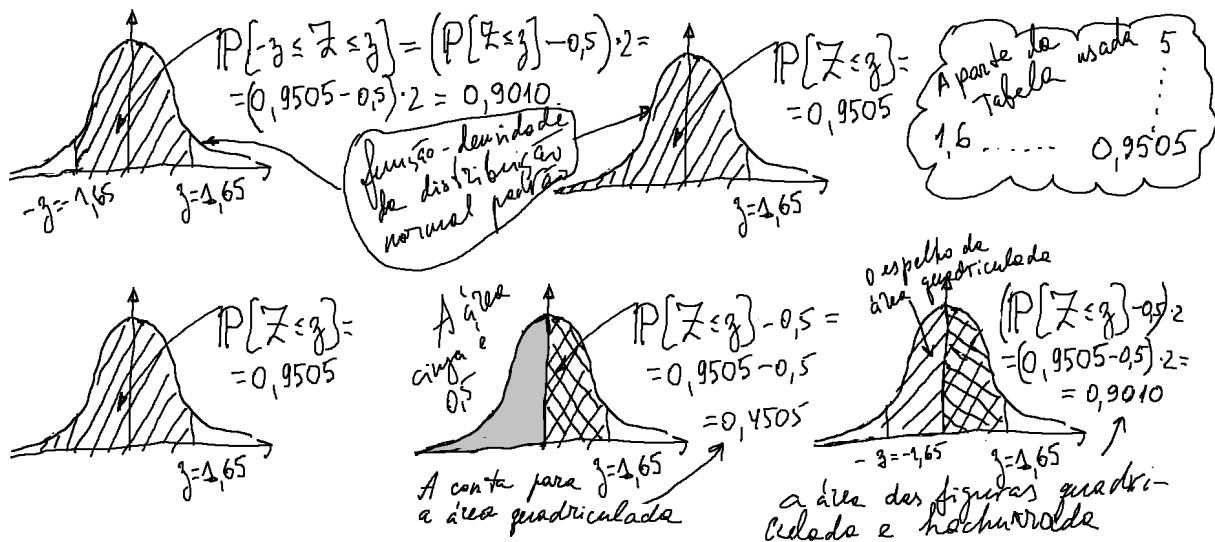 ℙ[-z ≤ Z ≤ z] = (ℙ[Z ≤ z] - 0,5)·2 =
= (0,9505 - 0,5)·2 = 0,9010
-z=-1,65
z=1,65
função-densidade
da distribuição
normal padrão
ℙ[Z ≤ z] =
= 0,9505
z=1,65
A parte da
Tabela usada
5
1,6 ....... 0,9505
ℙ[Z ≤ z] =
= 0,9505
z=1,65
A área
cinza é
0,5
ℙ[Z ≤ z] - 0,5 =
= 0,9505 - 0,5
= 0,4505
z=1,65
A conta para
a área quadriculada
o espelho da
área quadriculada
(ℙ[Z ≤ z] - 0,5)·2
= (0,9505 - 0,5)·2 =
= 0,9010
-z=-1,65
z=1,65
a área das figuras quadri-
culada e hachurrada